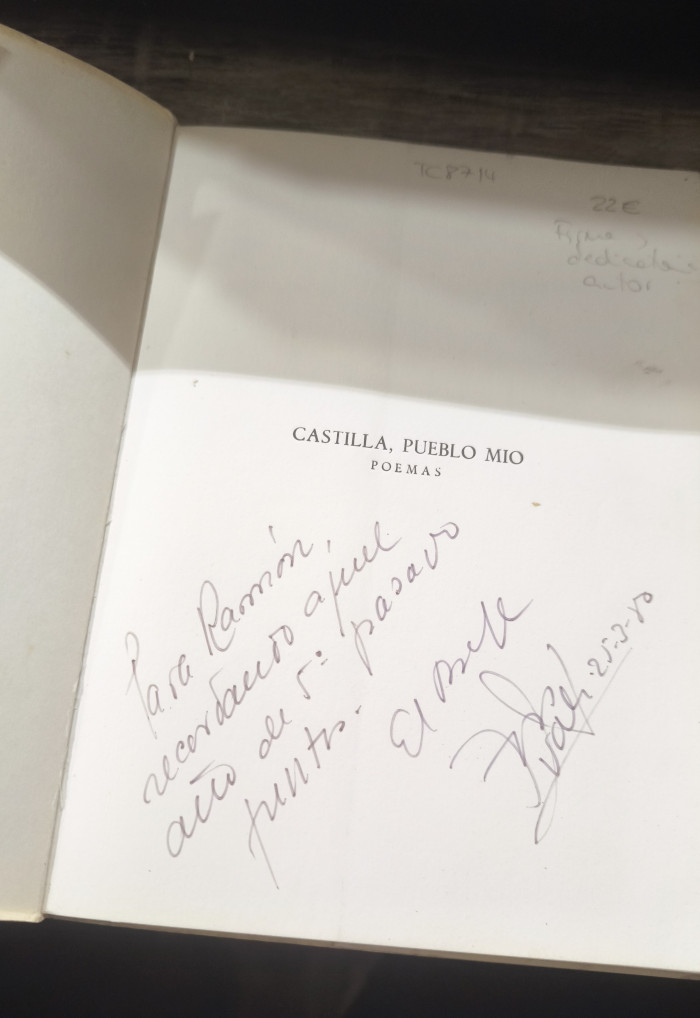 TC8714
22€
Firma y
dedicatoria
autor
CASTILLA, PUEBLO MIO
POEMAS
Para Ramón,
recordando aquel
año de 5º pasado
juntos.
El Profe
25-3-80